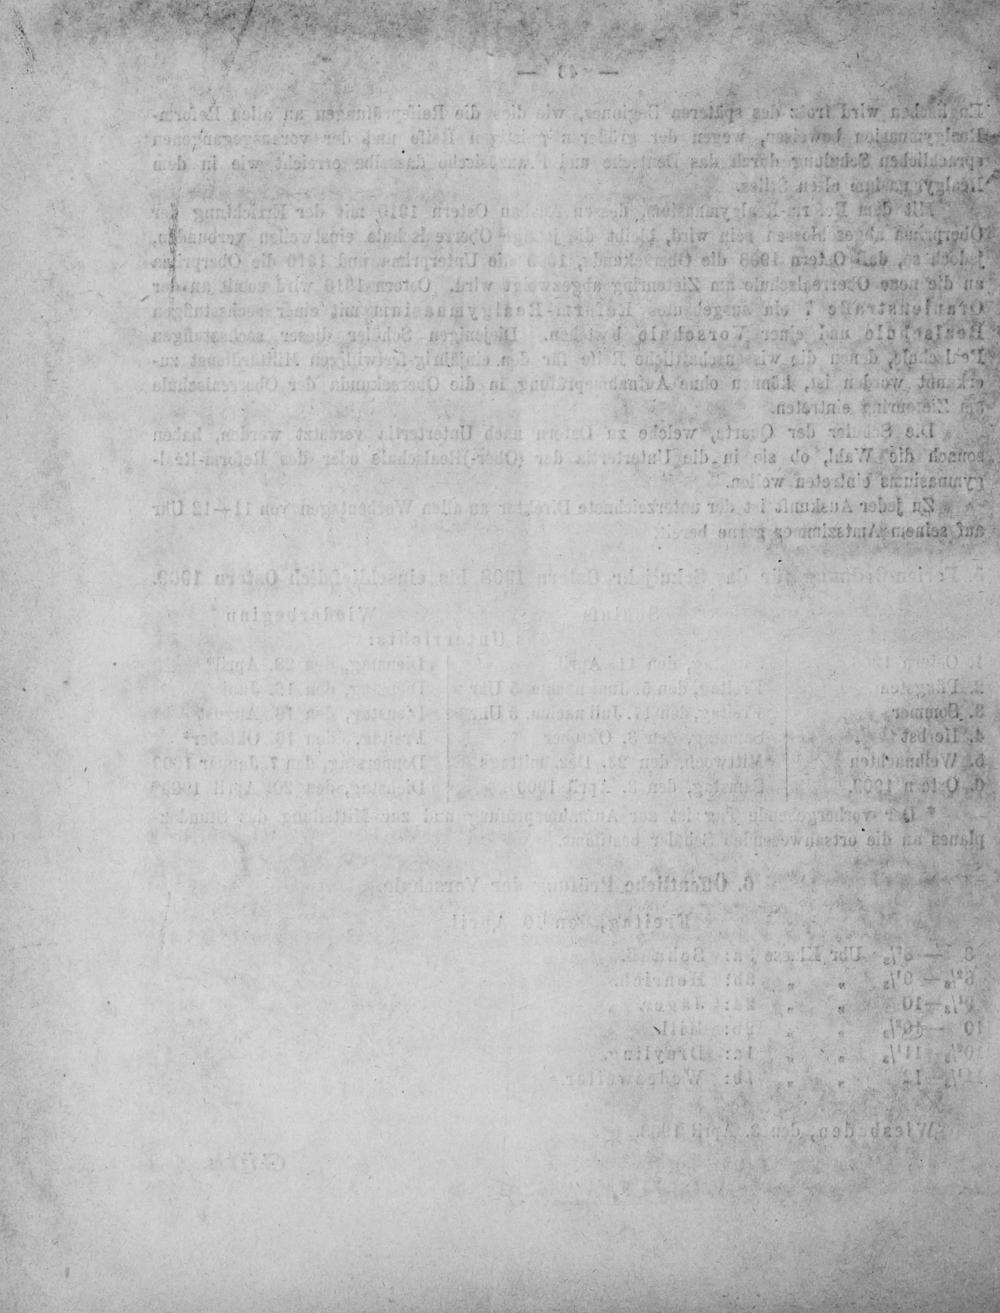 — 43 —
wird trotz des späteren Beginnes, wie dies die Reifeprüfungen an allen Reform-
Realgymnasien beweisen, wegen der größeren geistigen Reife und der vorausgegangenen
sprachlichen Schulung durch das Deutsche und Französische dasselbe erreicht wie in dem
Realgymnasium alten Stiles.
Mit dem Reform-Realgymnasium, dessen Ausbau Ostern 1910 mit der Errichtung der
Oberprima abgeschlossen sein wird, bleibt die jetzige Oberrealschule einstweilen verbunden,
jedoch so, daß Ostern 1908 die Obersekunda, 1909 die Unterprima und 1910 die Oberprima
an die neue Oberrealschule am Zietenring abgezweigt wird. Ostern 1910 wird somit an der
Oranienstraße 7 ein ausgebautes Reform-Realgymnasium mit einer sechsstufigen
Realschule und einer Vorschule bestehen. Diejenigen Schüler dieser sechsstufigen
Realschule, denen die wissenschaftliche Reife für den einjährig-freiwilligen Militärdienst zu-
erkannt worden ist, können ohne Aufnahmeprüfung in die Obersekunda der Oberrealschule
am Zietenring eintreten.
Die Schüler der Quarta, welche zu Ostern nach Untertertia versetzt werden, haben
sonach die Wahl, ob sie in die Untertertia der (Ober-)Realschule oder des Reform-Real-
gymnasiums eintreten wollen.
Zu jeder Auskunft ist der unterzeichnete Direktor an allen Wochentagen von 11—12 Uhr
auf seinem Amtszimmer gerne bereit.
5. Ferien-Ordnung für das Schuljahr Ostern 1908 bis einschließlich Ostern 1909.
Schluß Wiederbeginn
des Unterrichts:
1. Ostern den 11. April Dienstag, den 28. April*
2. Pfingsten Freitag, den 5. Juni nachm. 5 Uhr Dienstag, den 16. Juni
3. Sommer Freitag, den 17. Juli nachm. 5 Uhr Dienstag, den 18. August
4. Herbst Samstag, den 3. Oktober Freitag, den 16. Oktober*
5. Weihnachten Mittwoch, den 23. Dez. mittags Donnerstag, den 7. Januar 1909
6. Ostern 1909. Samstag, den 3. April 1909 Dienstag, den 20. April 1909*
* Der vorhergehende Tag ist zur Aufnahmeprüfung und zur Mitteilung des Stunden-
planes an die ortsanwesenden Schüler bestimmt.
6. Öffentliche Prüfung der Vorschule.
Freitag, den 10. April.
8 — Uhr Klasse 3a: Schmidt.
„ „ 3b: Henrich.
—10 „ „ 2a: Jäger.
10 — „ „ 2b:
„ „ 1a:
—12 „ „ 1b:
Wiesbaden, den 3. April 1908.